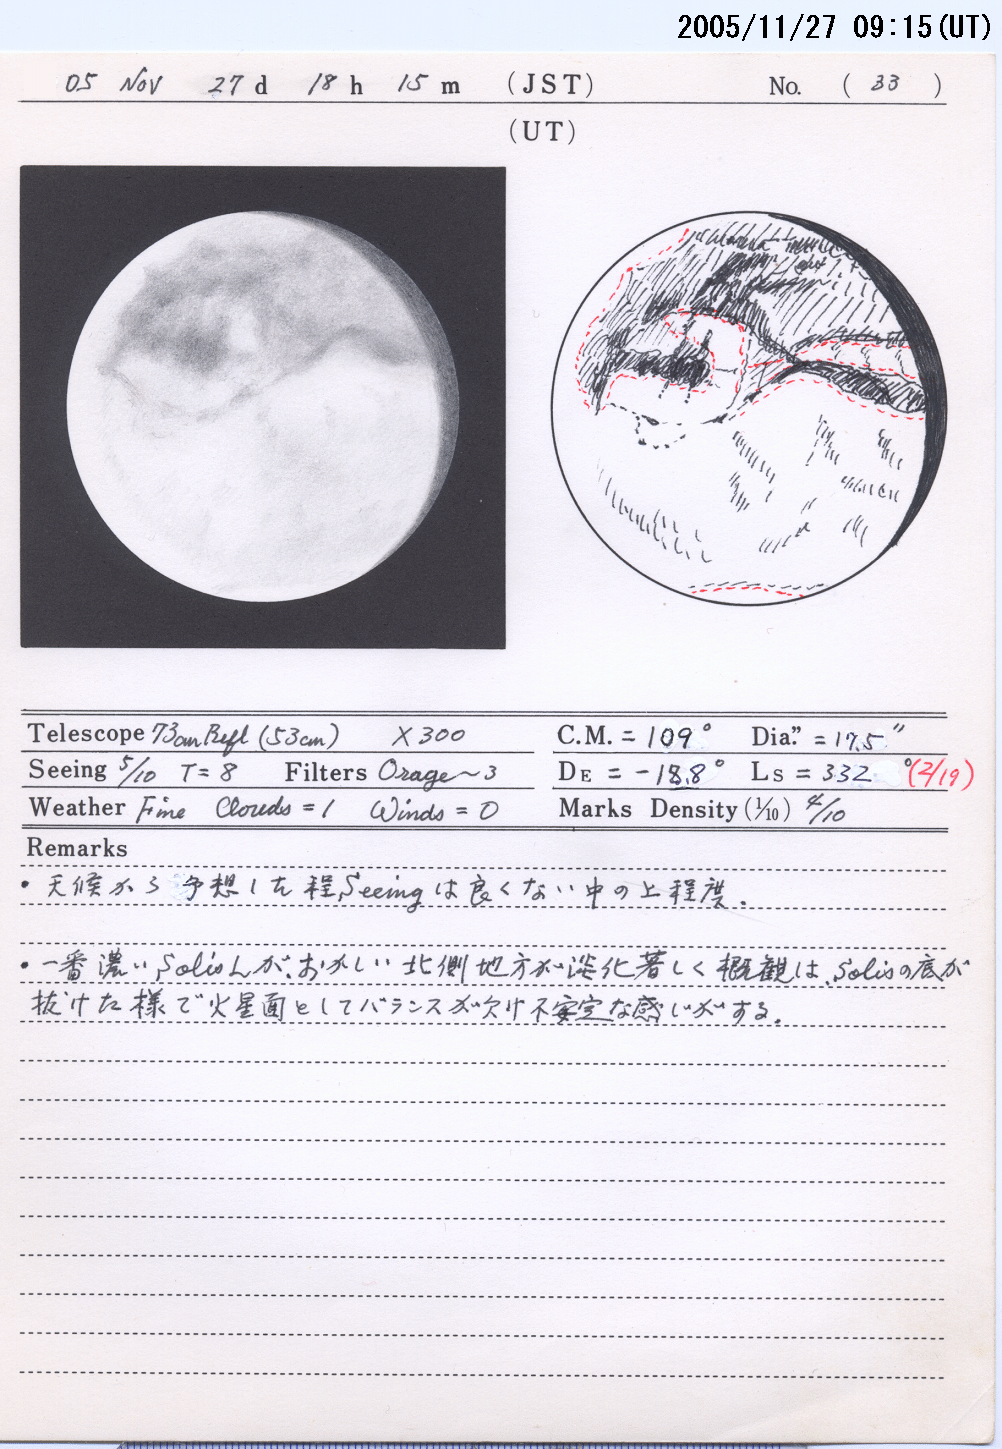 2005/11/27 09:15(UT)
05 Nov 27 d 18 h 15 m (JST) No. ( 33 )
(UT)
Telescope 73cm Refl (53cm) X300
C.M. = 109° Dia." = 17.5"
Seeing 5/10 T=8 Filters Orage~3
DE = -18.8° LS = 332° (2/19)
Weather Fine Clouds=1 Winds=0
Marks Density (1/10) 4/10
Remarks
・天候から予想した程、Seeingは良くない中の上程度.
・一番濃い、Solis Lが、おかしい北側地方が淡化著しく概観は、Solisの底が
抜けた様で火星面としてバランスが欠け不安定な感じがする.